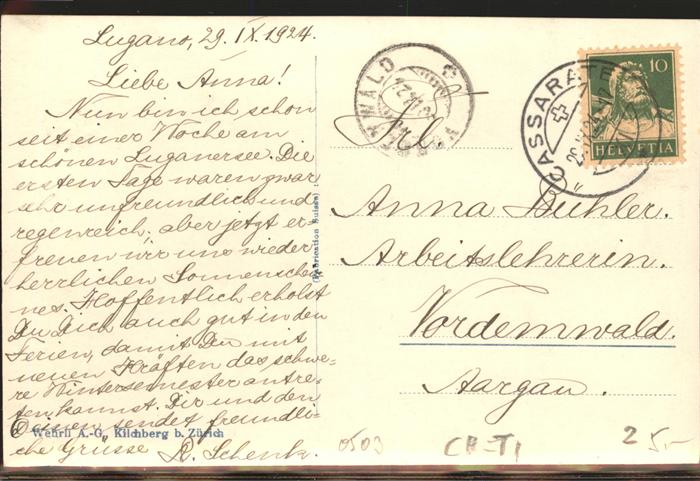 Lugano, 29. IX. 1924.
Liebe Anna!
Nun bin ich schon
seit einer Woche am
schönen Luganersee. Die
ersten Tage waren zwar
sehr unfreundlich und
regenreich, aber jetzt er-
freuen wir uns wieder
herrlichen Sonnenschei-
nes. Hoffentlich erholst
Du Dich auch gut in den
Ferien, damit Du mit
neuen Kräften das schwe-
re Wintersemester antre-
ten kannst. Dir und den
Deinen sendet freundli-
che Grüsse D. Schenk.
Wehrli A.-G., Kilchberg b. Zürich
(Fabrication Suisse)
Frl.
Anna Bühler.
Arbeitslehrerin.
Vordemwald.
Aargau.
CASSARATE
10
HELVETIA
0503
CH-TI
25.-